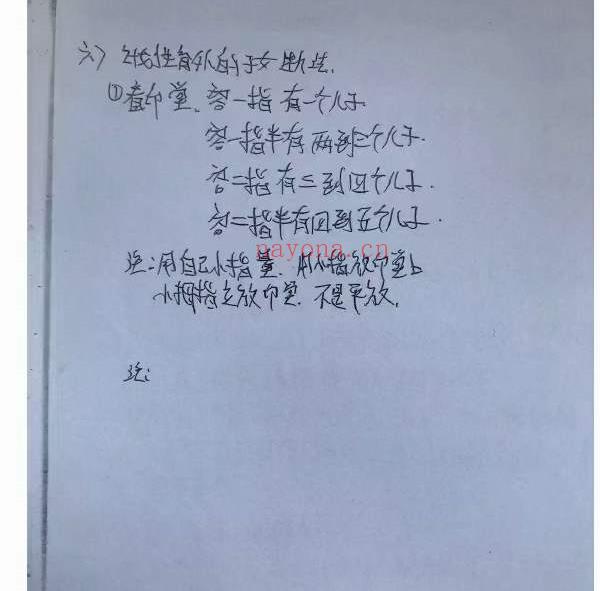 六) 找性身外的子女断法.
①看印堂. 容一指 有一个儿子
容一指半有两到三个儿子.
容二指 有三到四个儿子.
容二指半有四到五个儿子.
payona.cn
注:用自己小指量. 用小指放印堂上
小拇指立放印堂. 不是平放.
注: